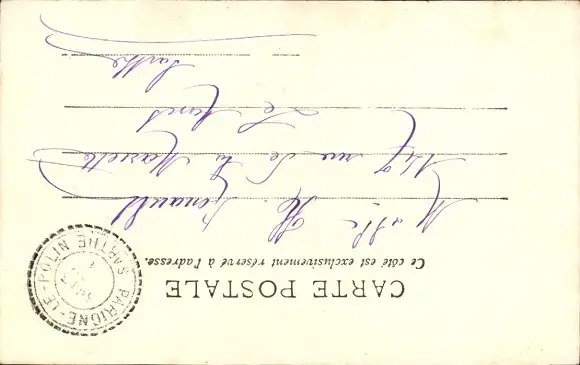 CARTE POSTALE
Ce côté est exclusivement réservé à l'adresse.
M elle H. Renault
149 rue de la Mariette
Le Mans
Sarthe
PARIGNE-LE-POLIN SARTHE